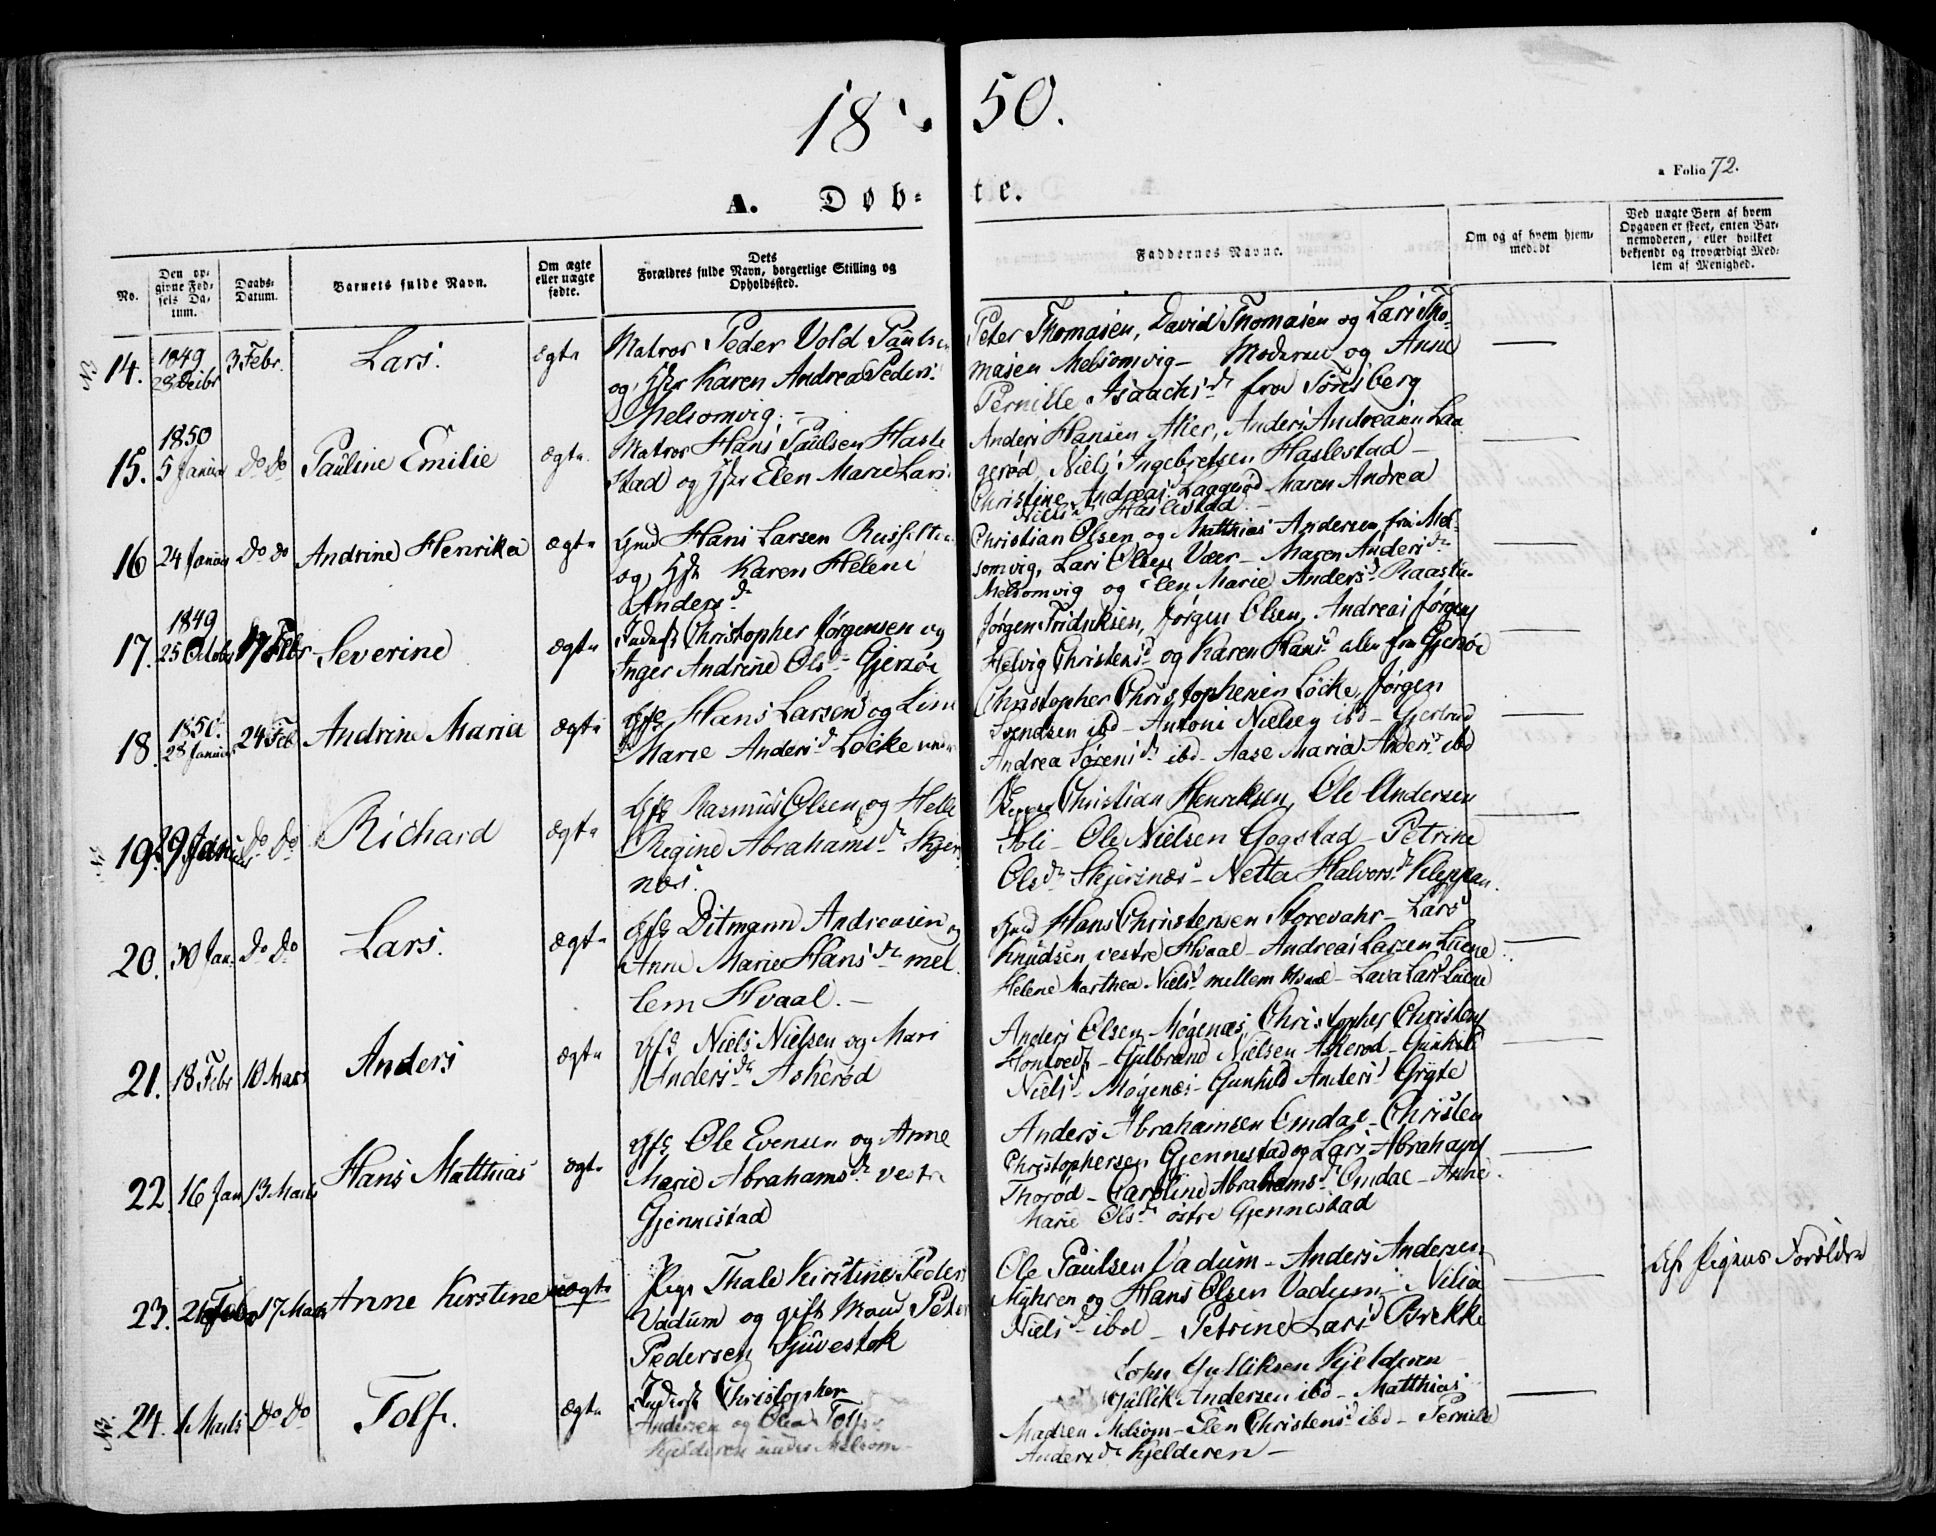 18 50.
a Folio 72.
A. Døb- te.
No.
Den op-
givne Fød-
sels Da-
tum.
Daabs-
Datum.
Barnets fulde Navn.
Om ægte
eller uægte
fødte.
Dets
Forældres fulde Navn, borgerlige Stilling og
Opholdssted.
Faddernes Navne.
Om og af hvem hjem-
medøbt
Ved uægte Børn af hvem
Opgaven er skeet, enten Bar-
nemoderen, eller hvilket
bekjendt og troværdigt Med-
lem af Menighed.
14. 1849 28 Decbr 3 Febr. Lars. ægte
Matros Peder Vold Paulsen
og Hst Karen Andrea Peders.
Melsomvig. -
Peter Thomasen, David Thomasen og Lars Tho-
masen Melsomvig - Moderen og Anne
Pernille Isaachsdr fra Tønsberg
15. 1850 5 Januar do do Pauline Emilie ægte
Matros Hans Paulsen Hasle
stad og Hst Elen Marie Lars.
Anders Hansen Aker, Anders Andreasen Laa
gerød, Niels Ingebretsen Haslestad -
Christine Andreas. Laagerød - Maren Andrea
Niels. Haslestad -
16 24 Januar do do Andrine Henrikea ægte
Gmd Hans Larsen
og Hst Karen Helene
Andersdr
Christian Olsen og Matthias Andersen fra Mel-
somvig, Lars Olsen Vær - Maren Andersdr
Melsomvig og Elen Marie Andersd Raasta-
17. 1849 25 Octobr 17 Febr Severine ægte
Inderst Christopher Jørgensen og
Inger Andrine Olsd - Gjersøe
Jørgen Fridriksen, Jørgen Olsen, Andreas Jørgens
Helvig Christensd og Karen Hansd alle fra Gjersøe
18. 1850. 28 Januar 24 Feb Andrine Maria ægte
Hans Larsen og Lina
Marie Andersd Løcke
Christopher Christophersen Løcke, Jørgen
Svendsen ibd - Antoni Nielsen ibd - Gjertrud
Andrea Sørensd ibd - Aase Maria Andersd ibd
19. 29 Januar do do Richard ægte
Gft Rasmus Olsen og Helle
Regine Abrahamsdr Skjers
næs.
Christian Henriksen, Ole Andersen
Ole Nielsen Gogstad - Petrine
Olsdr Skjersnæs - Netta Halvorsd Kleppan.
20. 30 Jan. do do Lars. ægte
Gft Ditmann Andreasen og
Anne Marie Hansdr mel
lem Hvaal. -
Gmd Hans Christensen Storevahr - Lars
Knudsen vestre Hvaal - Andreas Larsen Luene
Helene Marthea Nielsd mellem Hvaal - Lava Larsd Luene
21. 18 Febr 10 Marts Anders ægte
Gft Niels Nielsen og Mari
Andersdr Askerød
Anders Olsen Møgenæs, Christopher Christens
Hontvedt - Gulbrand Nielsen Askerød - Gunhild
Nielsd - Møgenæs - Gunhild Andersd Gryte
22. 16 Jan 13 Marts Hans Matthias ægte
Gft Ole Evensen og Anne
Marie Abrahamsdr vestre
Gjennestad
Anders Abrahamsen Omdal - Christen
Christophersen Gjennestad og Lars Abrahams
Thorød - Caroline Abrahamsd Omdal - Anne
Marie Olsd østre Gjennestad
23. 26 Febr 17 Marts Anne Kirstine uægte
Pige Thale Kirstine Peders
Vadum og gift Mand Peter
Pedersen Sjuestok
Ole Paulsen Vadum - Anders Andersen
Myhren og Hans Olsen Vadum - Nilia
Nielsd ibd - Petrine Larsd Brekke
Af Pigens Forældre
24. 6 Marts do do Tolf. ægte
Inderst Christopher
Andersen og Olea Tolfs.
Kjelderen under Melsom -
Gulliksen Kjelderen
Gullik Andersen ibd - Matthias
Madsen Melsom - Elen Christensd ibd - Pernille
Andersdr Kjelderen -